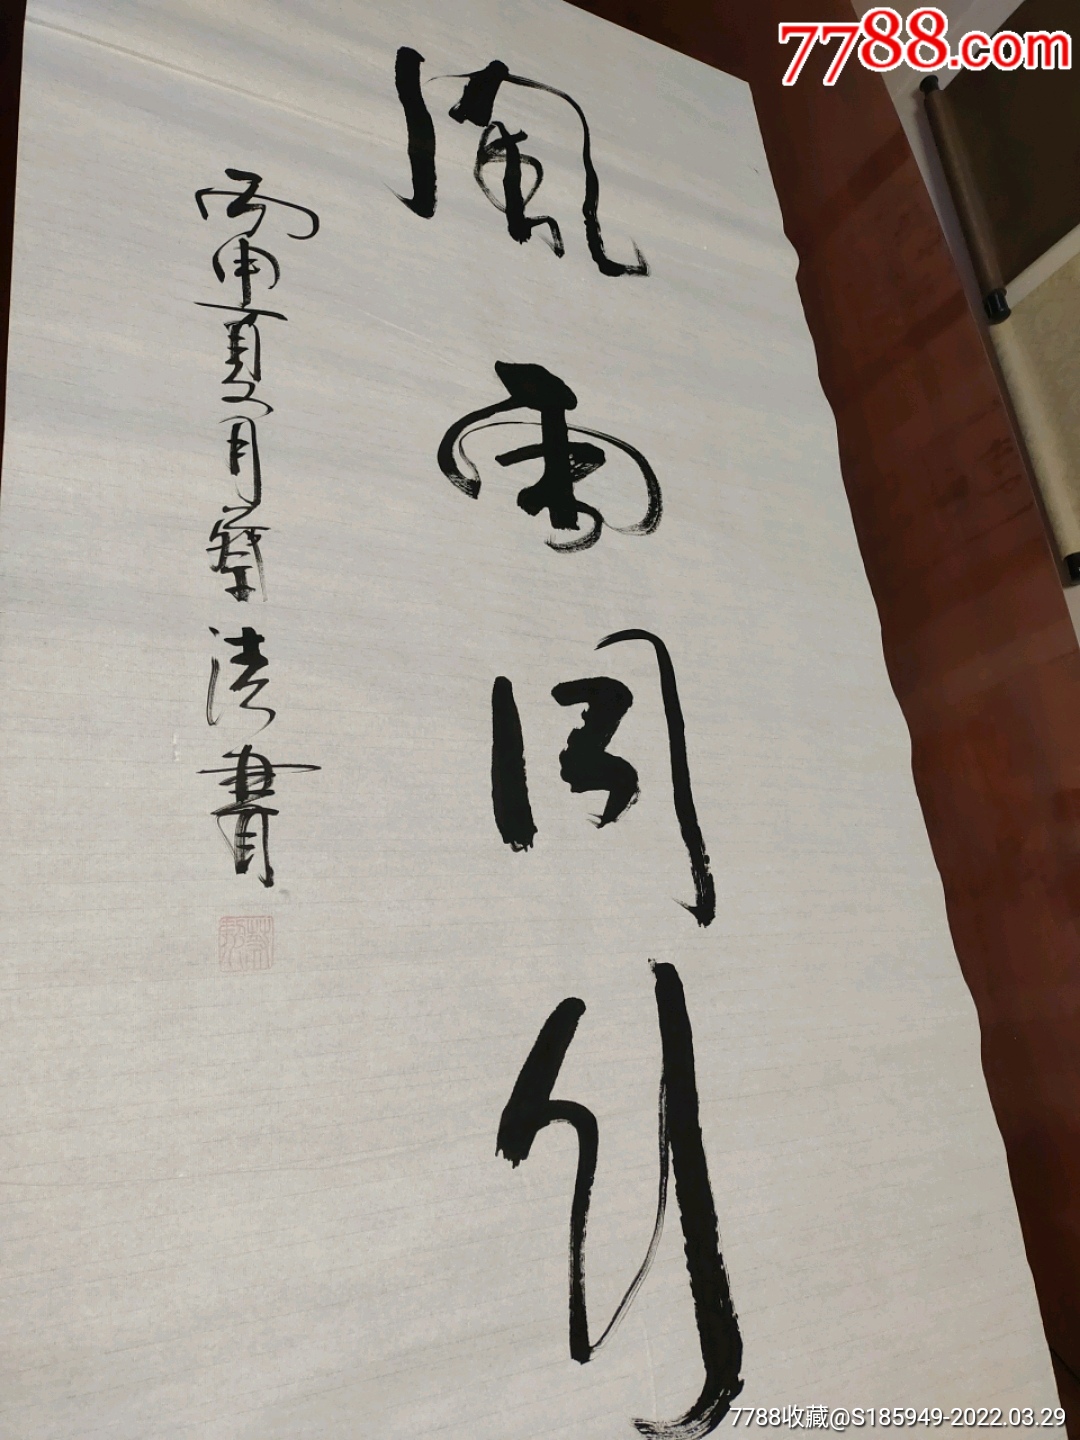 7788.com
風雨同行
丙申夏月蔡清書
7788收藏@S185949-2022.03.29